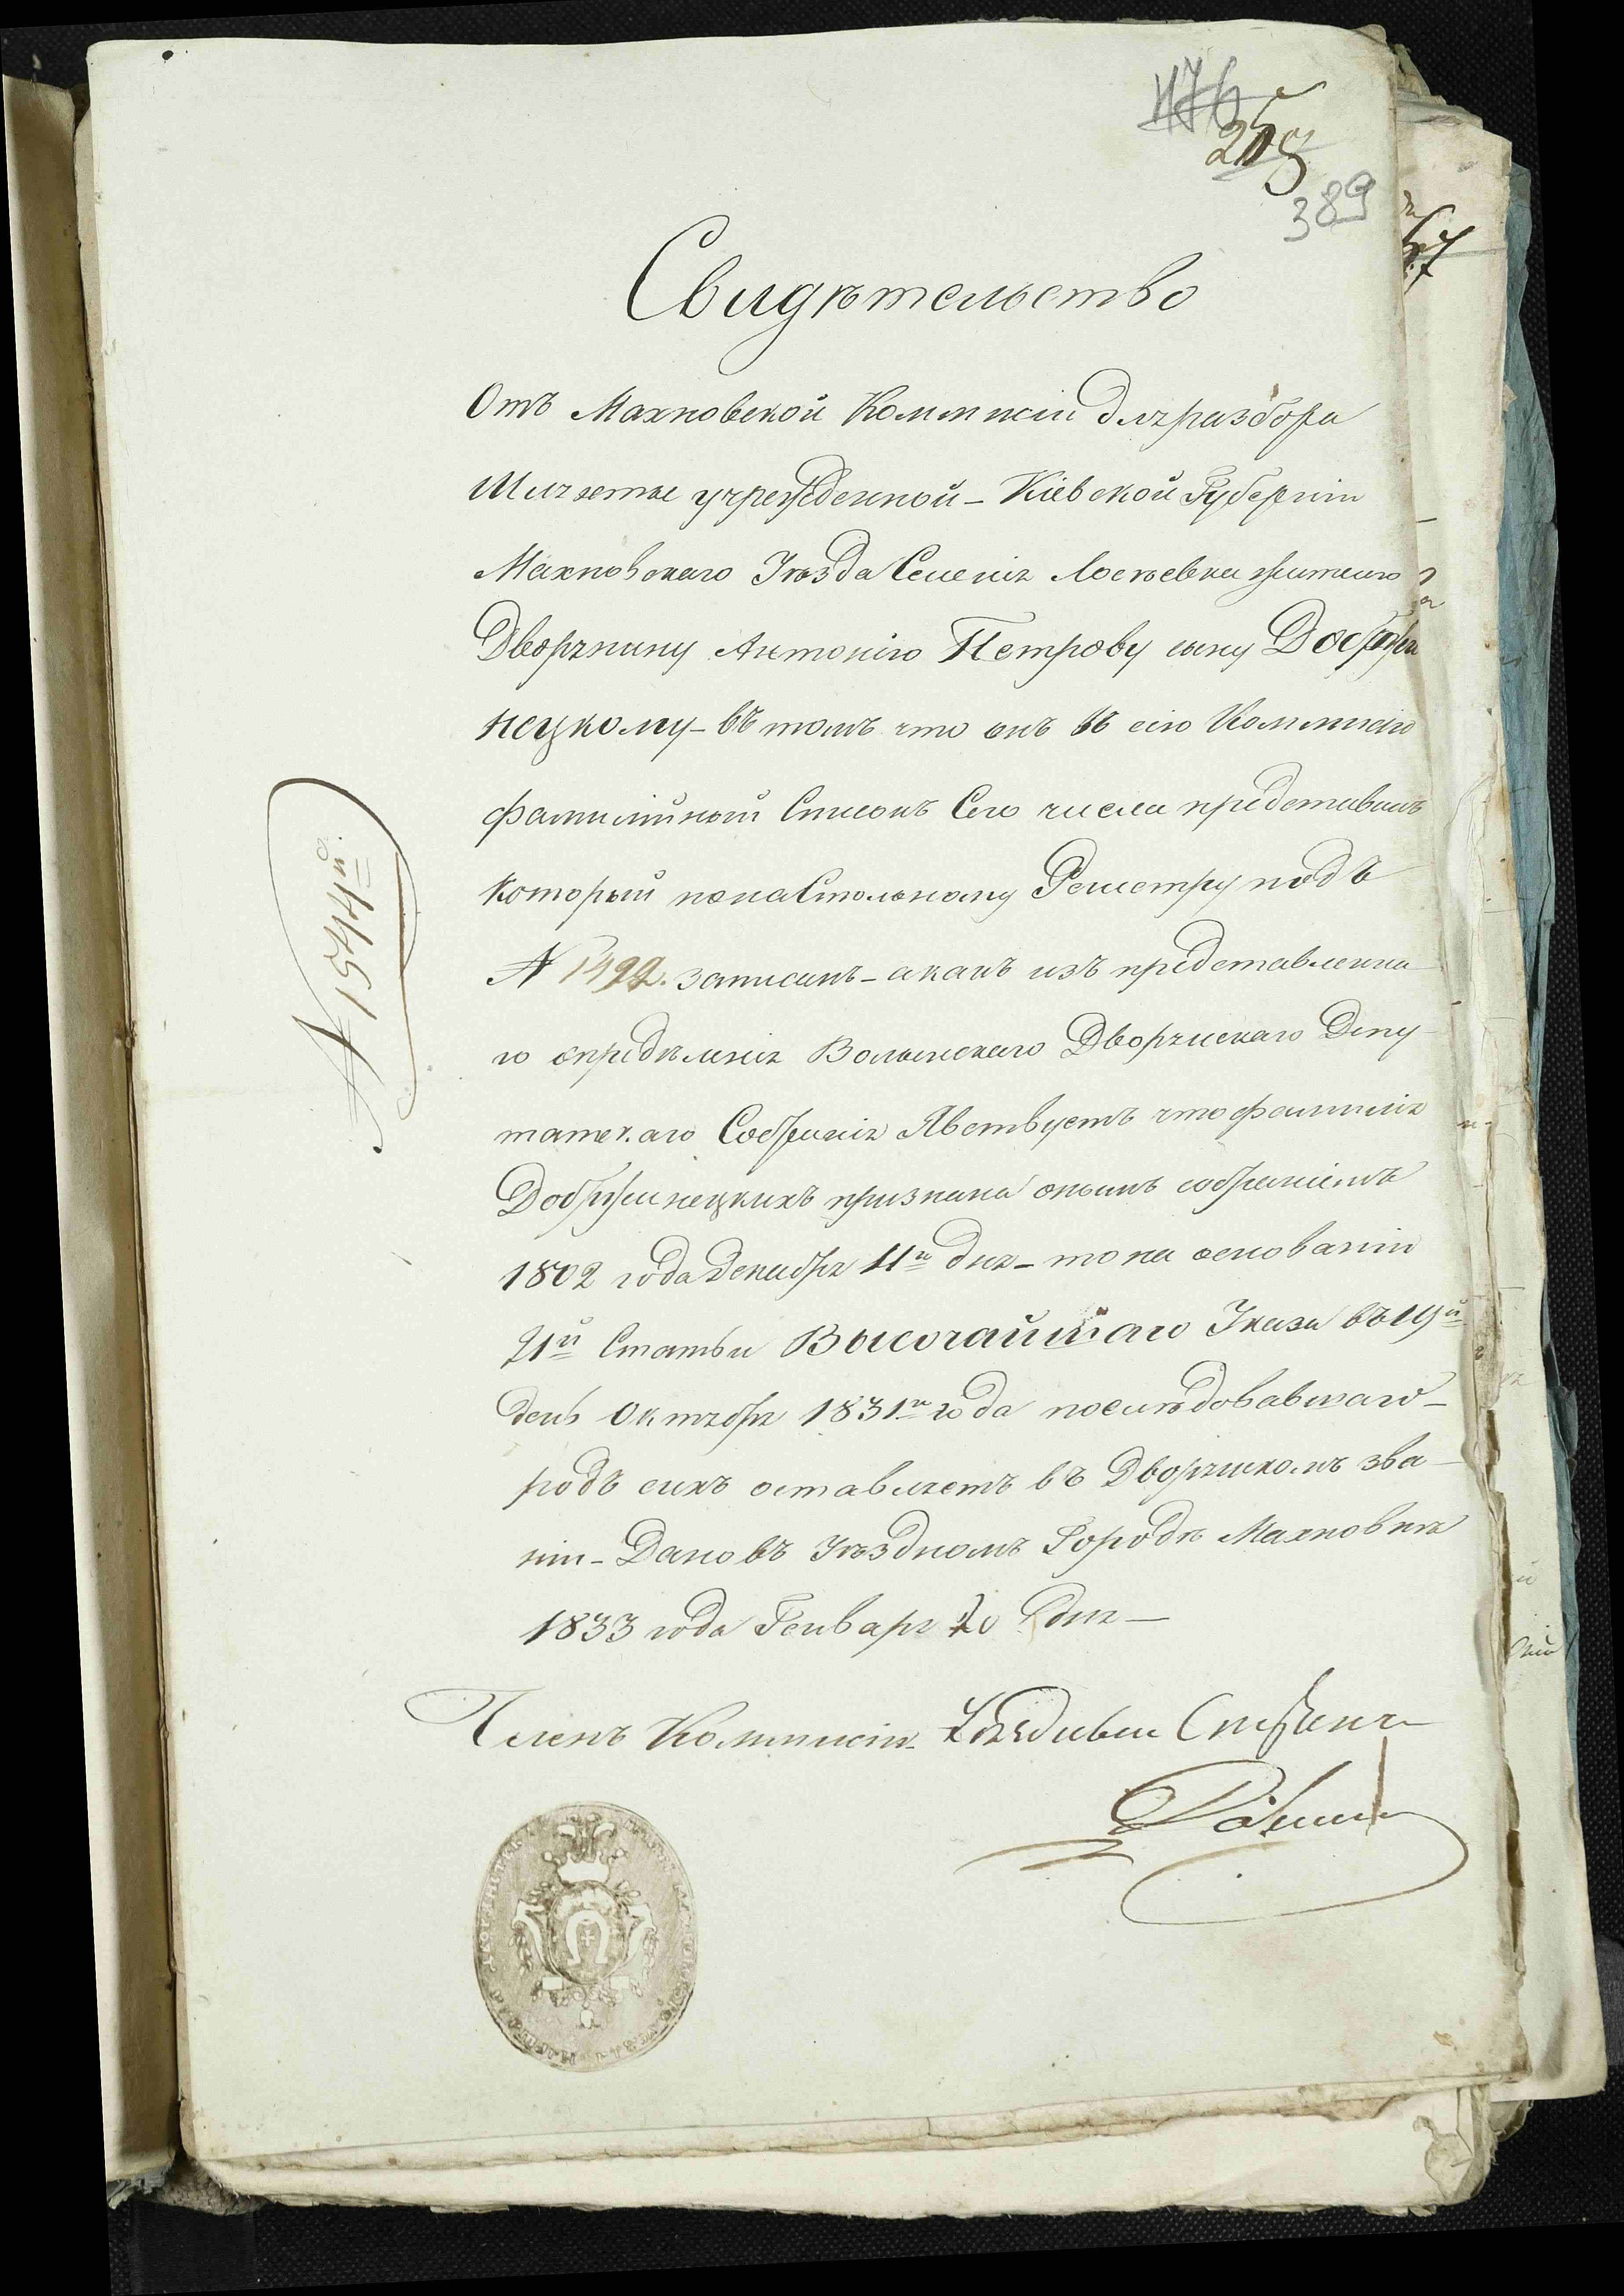 389
Свидѣтельство
Отъ Махновской Коммисіи для разбора
Шляхты учрежденной – Кіевской Губерніи
Махновскаго Уѣзда Селенія жителю
Дворянину Антонію Петрову сыну Добржи
нецкому – въ томъ что онъ въ сію Коммисію
фамилійный Списокъ Сего числа представилъ
который по настольному Реэстру подъ
N 1492. записанъ – а какъ изъ представленна
го опредѣленія Волынскаго Дворянскаго Депу
татскаго Собранія Явствуетъ что фамилія
Добржинецкихъ признана онымъ собраніемъ
1802 года Декабря 11го дня – то на основаніи
21й Статьи Высочайшаго Указа въ 19й
день Октября 1831го года послѣдовавшаго –
родъ сихъ оставляетъ въ Дворянскомъ зва
ніи – Дано въ Уѣздномъ Городѣ Махновкѣ
1833 года Генваря 20 дня —
Членъ Коммисіи
N 1544й